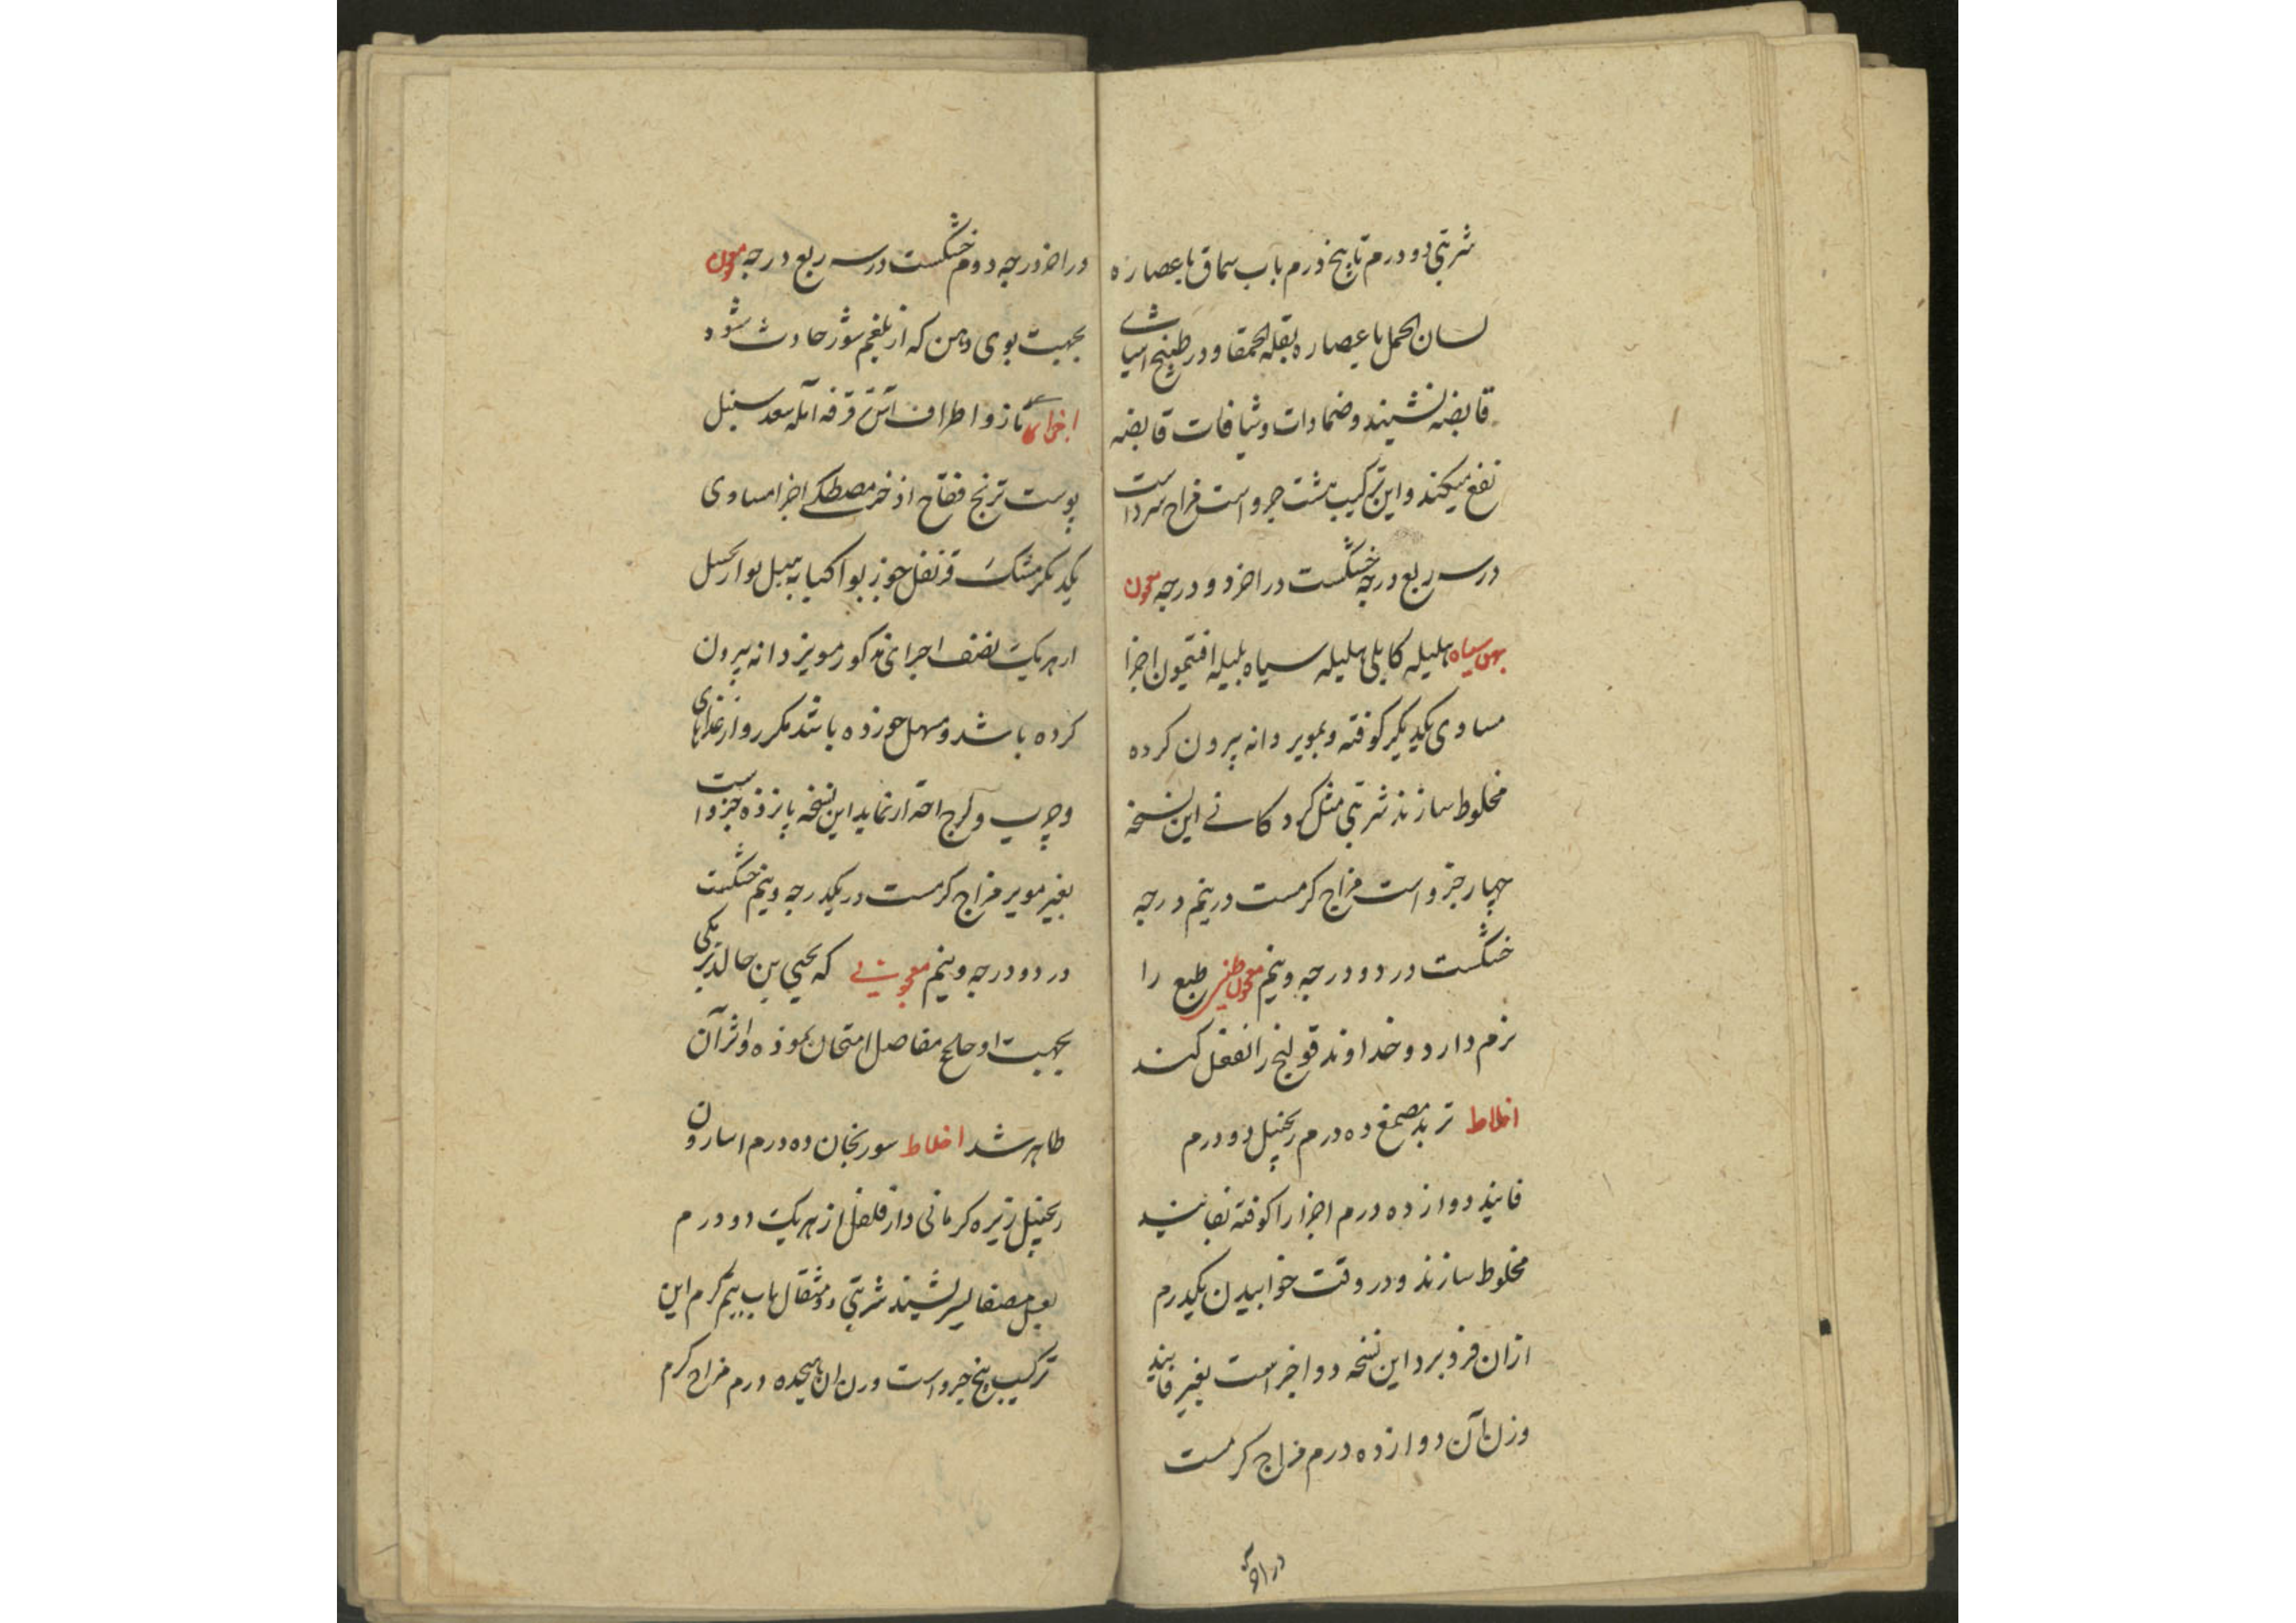 شربتی دو درم تا پنج درم باب سماق یا عصاره
لسان الحمل یا عصاره بقلة الحمقا و در طبیخ اشیای
قابضه نشیند و ضمادات و شیافات قابضه
نفع میکند و این ترکیب هشت جزو است مزاج سرد است
در سه ربع درجه خشکست در اخر دو درجه معجون
بهق سیاه هلیله کابلی هلیله سیاه بلیله افتیمون اجزا
مساوی یکدیگر کوفته و بمویز دانه بیرون کرده
مخلوط سازند شربتی مثل کردکانی این نسخه
چهار جزو است مزاج کرمست در نیم درجه
خشکست در دو درجه و نیم معجون طبع را
نرم دارد و خداوند قولنج را نفع کند
اخلاط تربد مصمغ ده درم زنجبیل دو درم
فانید دوازده درم اجزا را کوفته بفانید
مخلوط سازند و در وقت خوابیدن یکدرم
ازان فرو برد این نسخه دو اجزاست بغیر فانید
وزن آن دوازده درم مزاج کرمست
در اخر
در اخر درجه دوم خشکست در سه ربع درجه معجون
بجهت بوی دهن که از بلغم شور حادث شود
اجزای مازو اطراف آس قرفه آمله سعد سنبل
پوست ترنج فقاح اذخر مصطکی اجزا مساوی
یکدیگر مشک قرنفل جوز بوا کبابه هیل بوا
از هر یک نصف اجزای مذکور مویز دانه بیرون
کرده باشد و مسهل خورده باشد مکرر و از غذاهای
و چرب و لزج احتراز نماید این نسخه پانزده جزو است
بغیر مویز مزاج کرمست در یکدرجه و نیم خشکست
در دو درجه و نیم معجونی که یحیی بن خالد برمکی
بجهت اوجاع مفاصل امتحان نموده و اثر آن
ظاهر شد اخلاط سورنجان ده درم اسارون
زنجبیل زیره کرمانی دار فلفل از هر یک دو درم
بعسل مصفا بسرشند شربتی دو مثقال باب نیم کرم این
ترکیب پنج جزو است وزن ان هیجده درم مزاج کرم